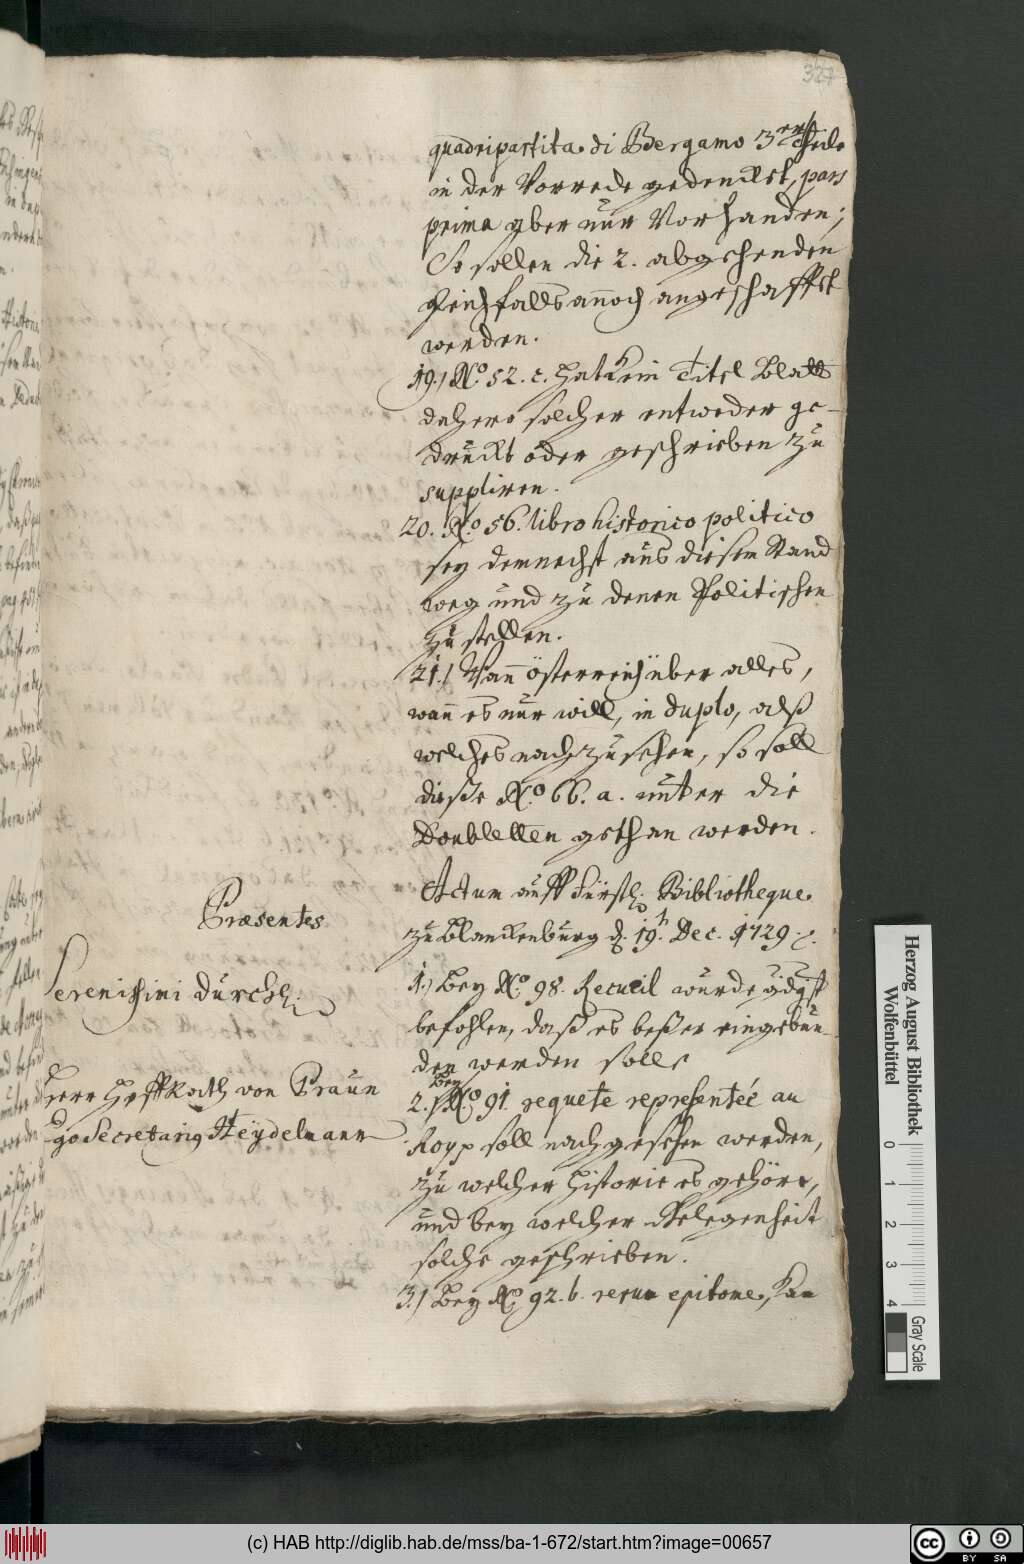 327
quadripartita di Bergamo 3er Theile
in der Vorrede gedenckst, pars
prima aber nur Vorhanden;
So sollen die 2. abgehenden
gleichfalls annoch angeschafft
werden.
19.) No. 52. c. hat kein Titel Blatt
dahero solcher entweder ge-
druckt oder geschrieben zu
suppliren.
20. No. 56. libro historico politico
sey demnechst aus diesem Stand
weg und zu denen Politischen
zu stellen.
21.) Wann Österreich über alles,
wann es nur will, in duplo, alß
welches nachzusehen, so soll
dieße No. 66. a. unter die
Doubletten gethan werden.
Actum auff Fürstl. Bibliotheque
zu Blanckenburg d. 19. Dec. 1729
Præsentes
Serenissimi Durchl.
Herr HoffRath von Praun
Secretarius Heydelmann
1.) Bey No. 98. Recueil wurde gdgst
befohlen, daß es beßer eingebun-
den werden solle
2. Bey No. 91. requete representée au
Royp soll nachgesehen werden,
zu welcher Historie es gehöre,
und bey welcher Gelegenheit
solche geschrieben.
3.) Bey No. 92. b. rerum epitome, kan
Herzog August Bibliothek
Wolfenbüttel
0 1 2 3 4
Gray Scale
(c) HAB http://diglib.hab.de/mss/ba-1-672/start.htm?image=00657
CC BY SA